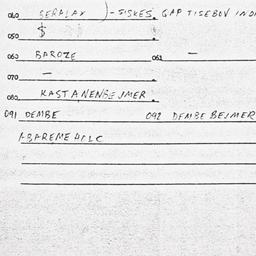 040 SERALAX ) - SISKES, GAP TISEBOV INDI
050 $
060 BAROZE 061 -
070 -
080 KASTANENBEJMER
091 DEMBE 092 DEMBE BEJMER